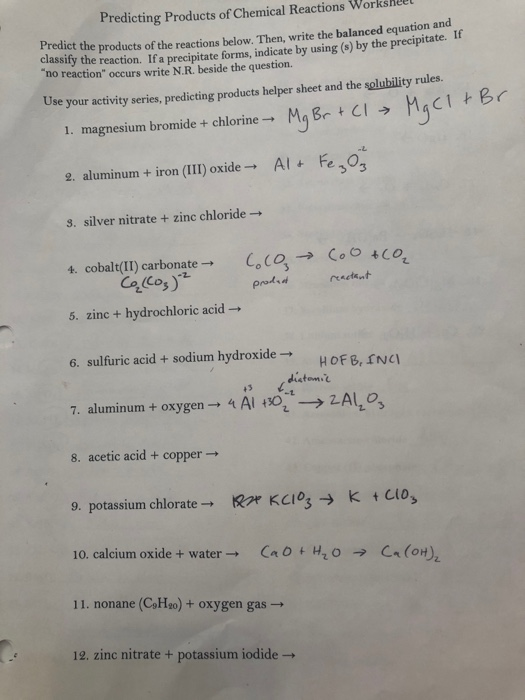 Predicting Products of Chemical Reactions Worksheet
Predict the products of the reactions below. Then, write the balanced equation and
classify the reaction. If a precipitate forms, indicate by using (s) by the precipitate. If
"no reaction" occurs write N.R. beside the question.
Use your activity series, predicting products helper sheet and the solubility rules.
1. magnesium bromide + chlorine → MgBr + Cl → MgCl + Br
2. aluminum + iron (III) oxide → Al + Fe3O3 -2
3. silver nitrate + zinc chloride →
4. cobalt(II) carbonate → CoCO3 → CoO + CO2
Co2(CO3)-2 product reactant
5. zinc + hydrochloric acid →
6. sulfuric acid + sodium hydroxide → HOFB, INCl
+3 diatomic
7. aluminum + oxygen → 4 Al + 3O2 -2 → 2Al2O3
8. acetic acid + copper →
9. potassium chlorate → KClO3 → K + ClO3
10. calcium oxide + water → CaO + H2O → Ca(OH)2
11. nonane (C9H20) + oxygen gas →
12. zinc nitrate + potassium iodide →